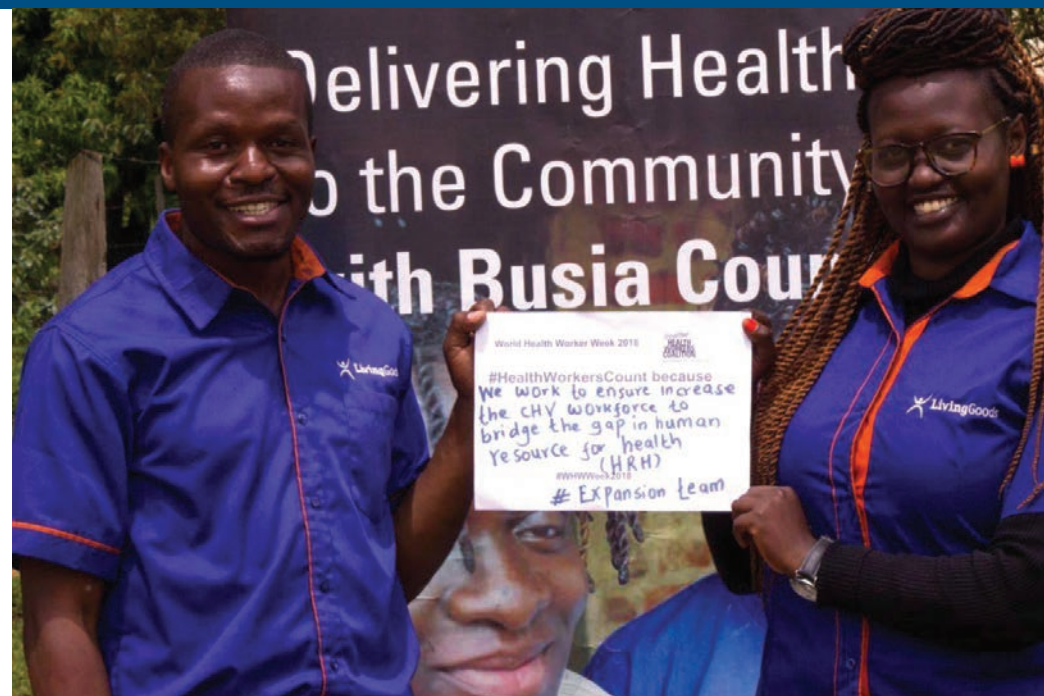 Delivering Health
to the Community
with Busia Coun
LivingGoo
World Health Worker Week 2018
HEALTH
WORKERS
COALITION
#HealthWorkersCount because
We work to ensure increase
the CHV workforce to
bridge the gap in human
resource for health
(HRH)
#WHWWeek2018
# Expansion team
LivingGoods